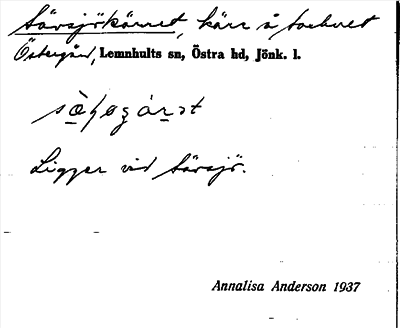 Sävsjökärret, kärr å torvlret
Östergård, Lemnhults sn, Östra hd, Jönk. l.
Ligger vid Sävsjö.
Annalisa Anderson 1937